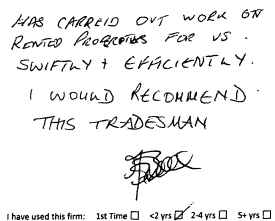 HAS CARREID OUT WORK ON
RENTED PROPERTIES FOR US.
SWIFTLY + EFFICIENTLY.
I WOULD RECOMMEND
THIS TRADESMAN
I have used this firm: 1st Time ☐ <2 yrs ☑ 2-4 yrs ☐ 5+ yrs ☐